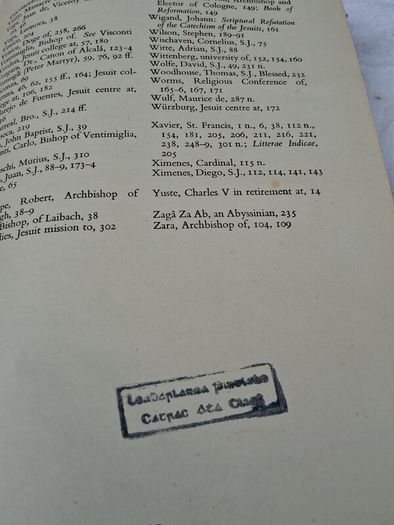 Elector of Cologne, 149; Book of
Reformation, 149
Wigand, Johann: Scriptural Refutation
of the Catechism of the Jesuits, 161
Wilson, Stephen, 189–91
Wischaven, Cornelius, S.J., 75
Witte, Adrian, S.J., 88
Wittenberg, university of, 152, 154, 160
Wolfe, David, S.J., 49, 231 n.
Woodhouse, Thomas, S.J., Blessed, 232
Worms, Religious Conference of,
165–6, 167, 171
Wulf, Maurice de, 287 n.
Würzburg, Jesuit centre at, 172
Xavier, St. Francis, 1 n., 6, 38, 112 n.,
154, 181, 205, 206, 211, 216, 221,
238, 248–9, 301 n.; Litterae Indicae,
205
Ximenes, Cardinal, 115 n.
Ximenes, Diego, S.J., 112, 114, 141, 143
Yuste, Charles V in retirement at, 14
Zagâ Za Ab, an Abyssinian, 235
Zara, Archbishop of, 104, 109
de, Viceroy of
38
pope, 258, 266
Bishop of. See Visconti
Jesuit college at, 57, 180
Dr., Canon of Alcalá, 123–4
(Peter Martyr), 59, 76, 92 ff.
46, 62, 155 ff., 164; Jesuit col-
at, 106, 182
de Fuentes, Jesuit centre at,
Bro., S.J., 214 ff.
219
John Baptist, S.J., 39
Carlo, Bishop of Ventimiglia,
Mutius, S.J., 310
Juan, S.J., 88–9, 173–4
65
Robert, Archbishop of
38–9
Bishop, of Laibach, 38
Jesuit mission to, 302
Leabharlanna Puiblidhe
Cathrac Áta Cliath